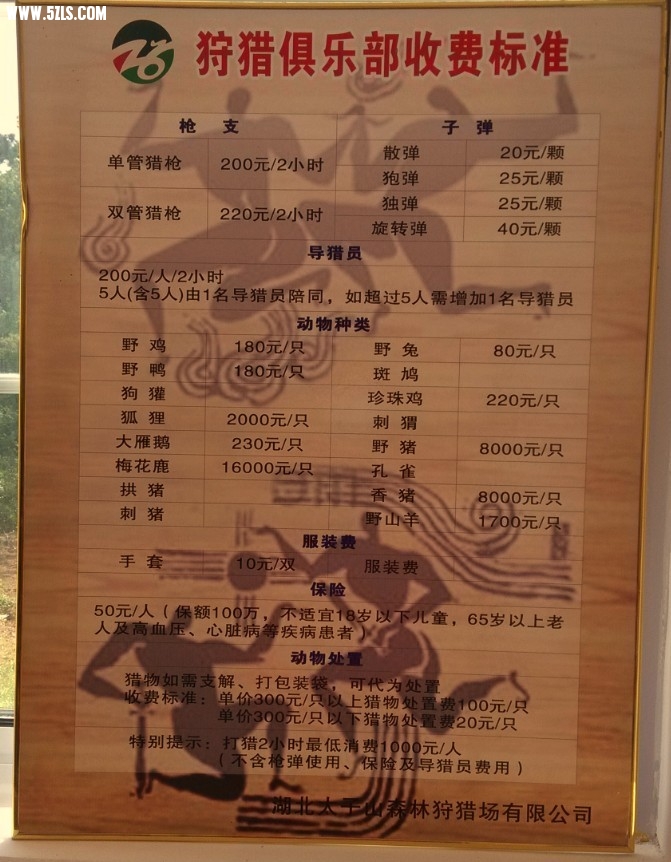 WWW.5ZLS.COM
狩猎俱乐部收费标准
枪 支 子 弹
单管猎枪 200元/2小时 散弹 20元/颗
狍弹 25元/颗
双管猎枪 220元/2小时 独弹 25元/颗
旋转弹 40元/颗
导猎员
200元/人/2小时
5人(含5人)由1名导猎员陪同，如超过5人需增加1名导猎员
动物种类
野 鸡 180元/只 野 兔 80元/只
野 鸭 180元/只 斑 鸠
狗 獾 珍珠鸡 220元/只
狐 狸 2000元/只 刺 猬
大雁鹅 230元/只 野 猪 8000元/只
梅花鹿 16000元/只 孔 雀
拱 猪 香 猪 8000元/只
刺 猪 野山羊 1700元/只
服装费
手 套 10元/双 服装费
保险
50元/人（保额100万，不适宜18岁以下儿童，65岁以上老
人及高血压、心脏病等疾病患者）
动物处置
猎物如需支解、打包装袋，可代为处置
收费标准：单价300元/只以上猎物处置费100元/只
单价300元/只以下猎物处置费20元/只
特别提示：打猎2小时最低消费1000元/人
（不含枪弹使用、保险及导猎员费用）
湖北太子山森林狩猎场有限公司